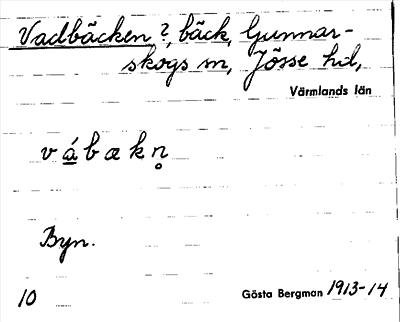 Vadbäcken?, bäck, Gunnar-
skogs sn, Jösse hd,
Värmlands län
v á b æ k n̥
Byn.
10 Gösta Bergman 1913-14